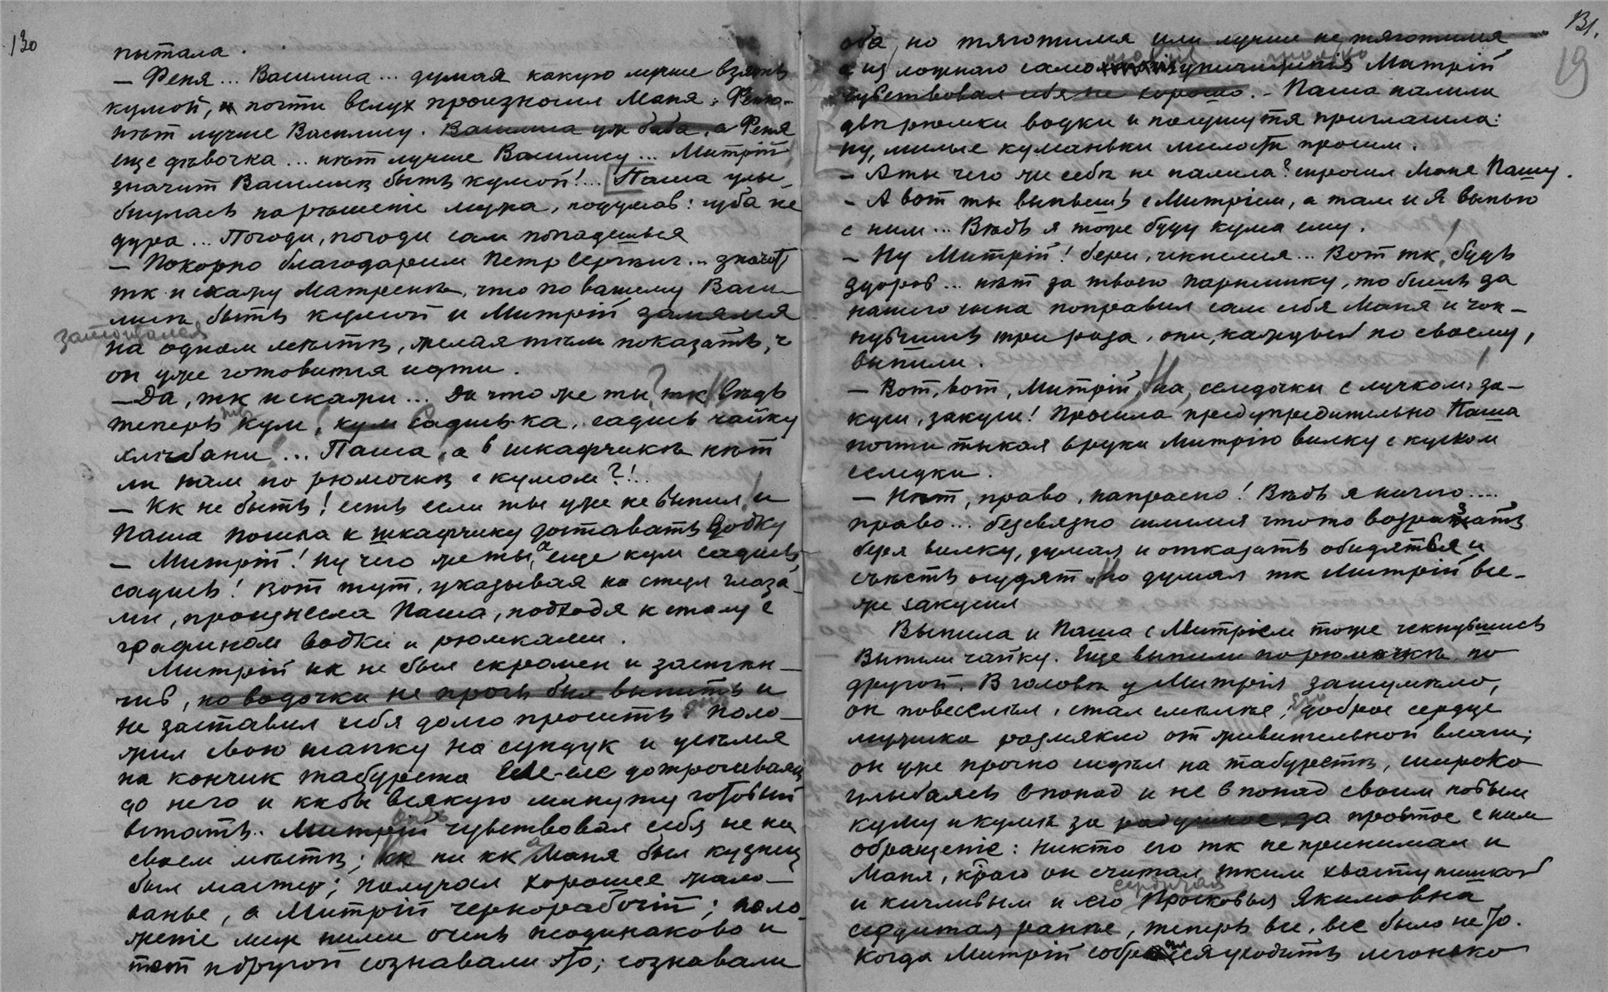 130
пытала.
— Феня... Василиса... думая какую лучше взять
кумой, и почти вслух произносил Маня: Феню-
нѣт лучше Василису. Василиса уж баба, а Феня
еще дѣвочка... нѣт лучше Василису... Митрій,
значит Василисѣ быть кумой!... Паша улы-
бнулась на рѣшеніе мужа, подумав: губа не
дура... Погоди, погоди сам попадешься
— Покорно благодарим Петр Сергѣич... значит
тк и скажу Матренѣ, что по вашему Васи-
лисѣ быть кумой и Митрій замялся
затоптался
на одном мѣстѣ, желая тѣм показать, ч
он уже готовится идти.
— Да, тк и скажи... Да что же ты, тк? Вѣдь
теперь кум, кум Садись-ка, садись чайку
хлѣбани... Паша, а в шкафчикѣ нѣт
ли нам по рюмочкѣ с кумом?!..
— Кк не быть! есть если ты уже не выпил, и
Паша пошла к шкафчику доставать водку
— Митрій! Ну чего же ты, а еще кум садись,
садись! Вот тут, указывая на стул глаза-
ми, произнесла Паша, подходя к столу с
графином водки и рюмками.
Митрій кк не был скромен и застен-
чив, но водочки не прочь был выпить и
не заставил себя долго просить Поло-
жил свою шапку на сундук и усѣлся
на кончик табурета еле-еле дотрогиваясь
до него и ккбы всякую минуту готовый
встать. Митрій чувствовал себя не на
своем мѣстѣ; кк ни кк а Маня был кузнец
был мастер; получал хорошее жало-
ванье, а Митрій чернорабочій; поло-
женіе меж ними очень неодинаково и
тот и другой сознавали это; сознавали
131.
19
оба, но тяготился или лучше не тяготился
а из ложнаго само Митрій
чувствовал себя не хорошо. — Паша налила
двѣ рюмки водки и полушутя пригласила:
ну, милые куманьки милости просим.
— А ты чего же себѣ не налила? спросил Маня Пашу.
— А вот ты выпьешь с Митріем, а там и я выпью
с ним... Вѣдь я тоже буду кума ему.
— Ну Митрій! бери, чкнемся... Вот тк, будь
здоров... нѣт за твоего парнишку, то бишь за
нашего сына поправил сам себя Маня и чок-
нувшись три раза, они, каждый по своему,
выпили.
— Вот, вот, Митрій, на, селедочки с лучком, за-
куси, закуси! Просила предупредительно Паша
почти тыкая в руки Митрію вилку с куском
селедки.
— Нѣт, право, напрасно! Вѣдь я ничего....
право... безсвязно силился что то возражать
беря вилку, думая и отказать обидятся и
съѣсть осудят. Но думая тк Митрій все-
же закусил
Выпила и Паша с Митріем тоже чкнувшись
Выпили чайку. Еще выпили по рюмочкѣ, по
другой. В головѣ у Митрія зашумѣло,
он повеселѣл, стал смѣлѣе, доброе сердце
мужика размякло от живительной влаги;
он уже прочно сидѣл на табуретѣ, широко
улыбаясь впопад и не впопад своим новым
куму и кумѣ за радушное, за простое с ним
обращеніе: никто его тк не принимал и
Маня, ктраго он считал тким хвастунишкой
и кичливым и его Прасковья Якимовна
сердитая
сердитая ранѣе, теперь все, все было не то.
Когда Митрій собрался уходить легонько